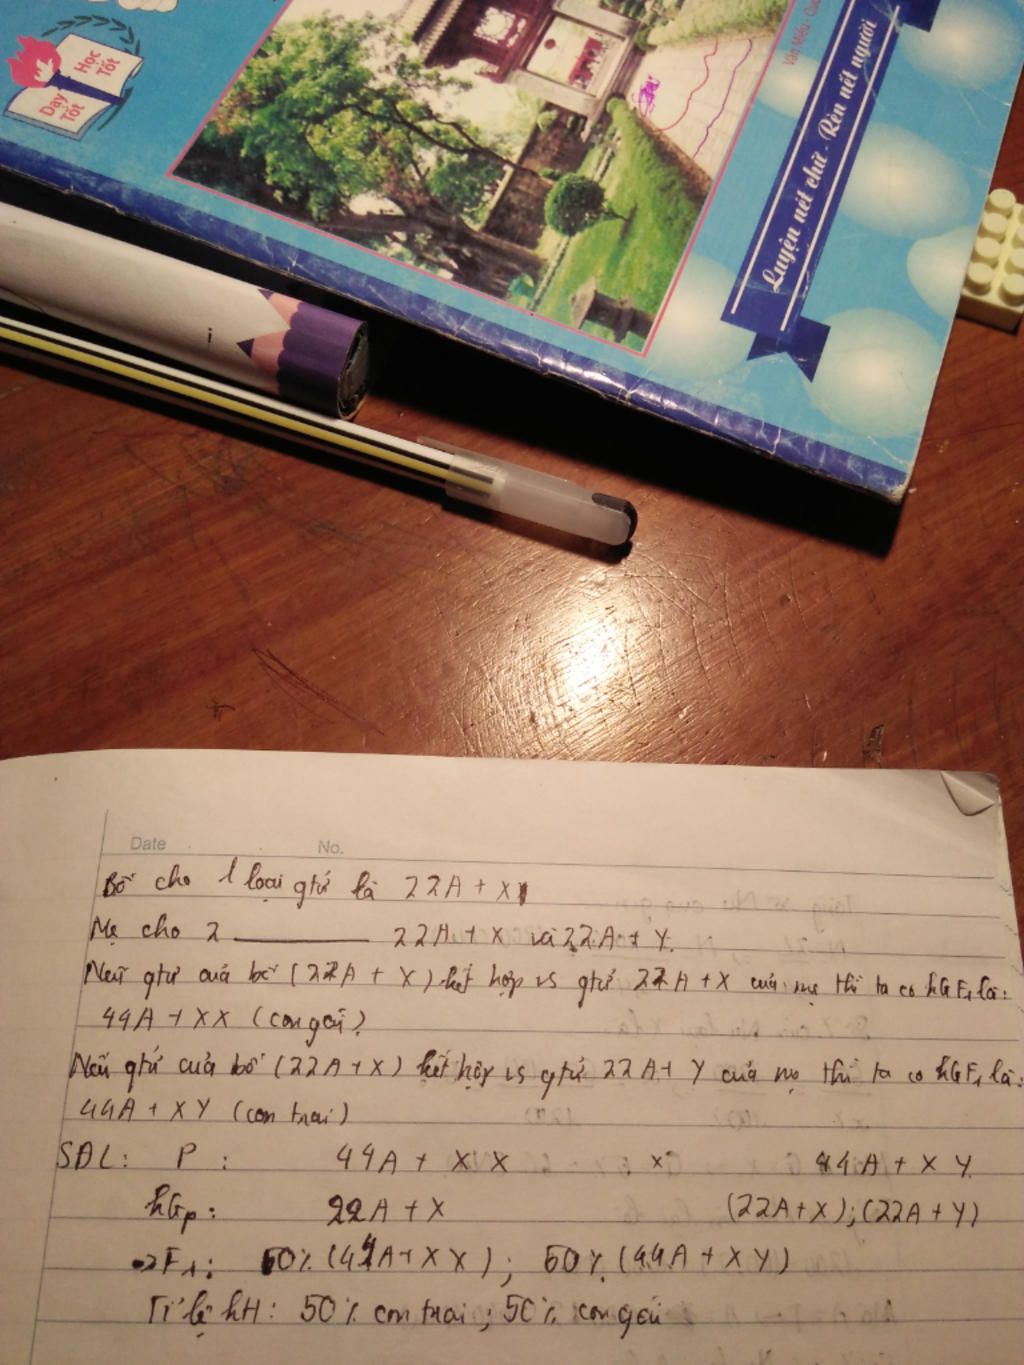 Dạy Tốt
Học Tốt
Văn Miếu - Quốc
Luyện nét chữ - Rèn nết người
Date No.
Bố cho 1 loại gtử là 22A + X
Mẹ cho 2 ——— 22A + X và 22A + Y.
Nếu gtử của bố (22A + X) kết hợp vs gtử 22A + X của mẹ thì ta có kG F1 là:
44A + XX (con gái)
Nếu gtử của bố (22A + X) kết hợp vs gtử 22A + Y của mẹ thì ta có kG F1 là:
44A + XY (con trai)
SĐL: P : 44A + XX x 44A + XY
kGp: 22A + X (22A + X) ; (22A + Y)
F1: 50% (44A + XX) ; 50% (44A + XY)
Tỉ lệ kH: 50% con trai ; 50% con gái